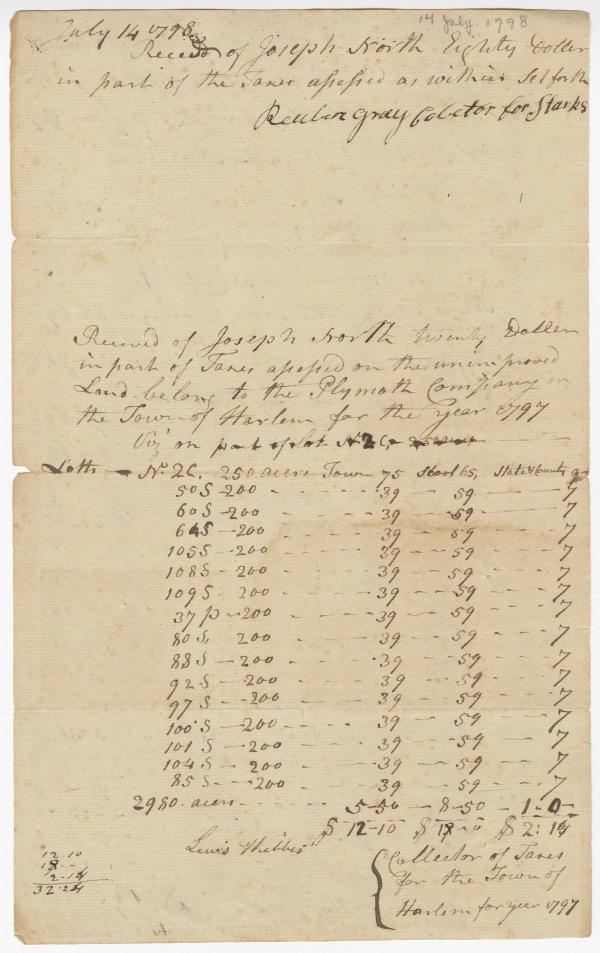 14 July. 1798
July 14 1798
Received of Joseph North Eighty Doller
in part of the Taxes assessed as within Set forth
Reuben Gray Colector for Starks
Receved of Joseph North twenty Dollers
in part of Taxes assessed on the unimproved
Land belong to the Plymoth Company in
the Town of Harlem for the year 1797
Viz on part of Lot No 26,
Lotts - No. 26. 250 acres Town 75 Scool 65, State & County 9-
50 S - 200 - - - 39 - - 59 - - 7
60 S - 200 - - - 39 - - 59 - - 7
64 S - 200 - - - 39 - - 59 - - 7
105 S - 200 - - - 39 - - 59 - - 7
108 S - 200 - - - 39 - - 59 - - 7
109 S - 200 - - - 39 - - 59 - - 7
37 p - 200 - - - 39 - - 59 - - 7
80 S, 200 - - - 39 - - 59 - - 7
88 S - 200 - - - 39 - - 59 - - 7
92 S - 200 - - - 39 - - 59 - - 7
97 S - 200 - - - 39 - - 59 - - 7
100 S - 200 - - - 39 - - 59 - - 7
101 S - 200 - - - 39 - - 59 - - 7
104 S - 200 - - - 39 - - 59 - - 7
85 S - 200 - - - 39 - - 59 - - 7
2980. acers - - - 5-50 - 8-50 - 1-0-
$ 12-10 $ 18-0 $ 2:14
Lewis Thebbes
Collector of Taxes
for the Town of
Harlem for year 1797
12.10
18 - -
2-14
32.24